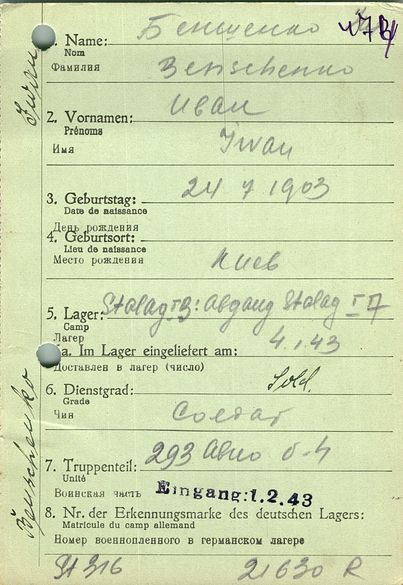 Беншенко
1. Name:
Nom
Фамилия
Benschenko
Иван
2. Vornamen:
Prénoms
Имя
Iwan
24 7 1903
3. Geburtstag:
Date de naissance
День рождения
4. Geburtsort:
Lieu de naissance
Место рождения
Киев
5. Lager: Stalag I B: Abgang Stalag I
Camp
Лагерь
4.1.43
5a. Im Lager eingeliefert am:
Доставлен в лагерь (число)
6. Dienstgrad: Sold.
Grade
Чин
Солдат
7. Truppenteil: 293
Unité
Воинская часть
Eingang: 1. 2. 43
8. Nr. der Erkennungsmarke des deutschen Lagers:
Matricule du camp allemand
Номер военнопленного в германском лагере
St 316 21630 R